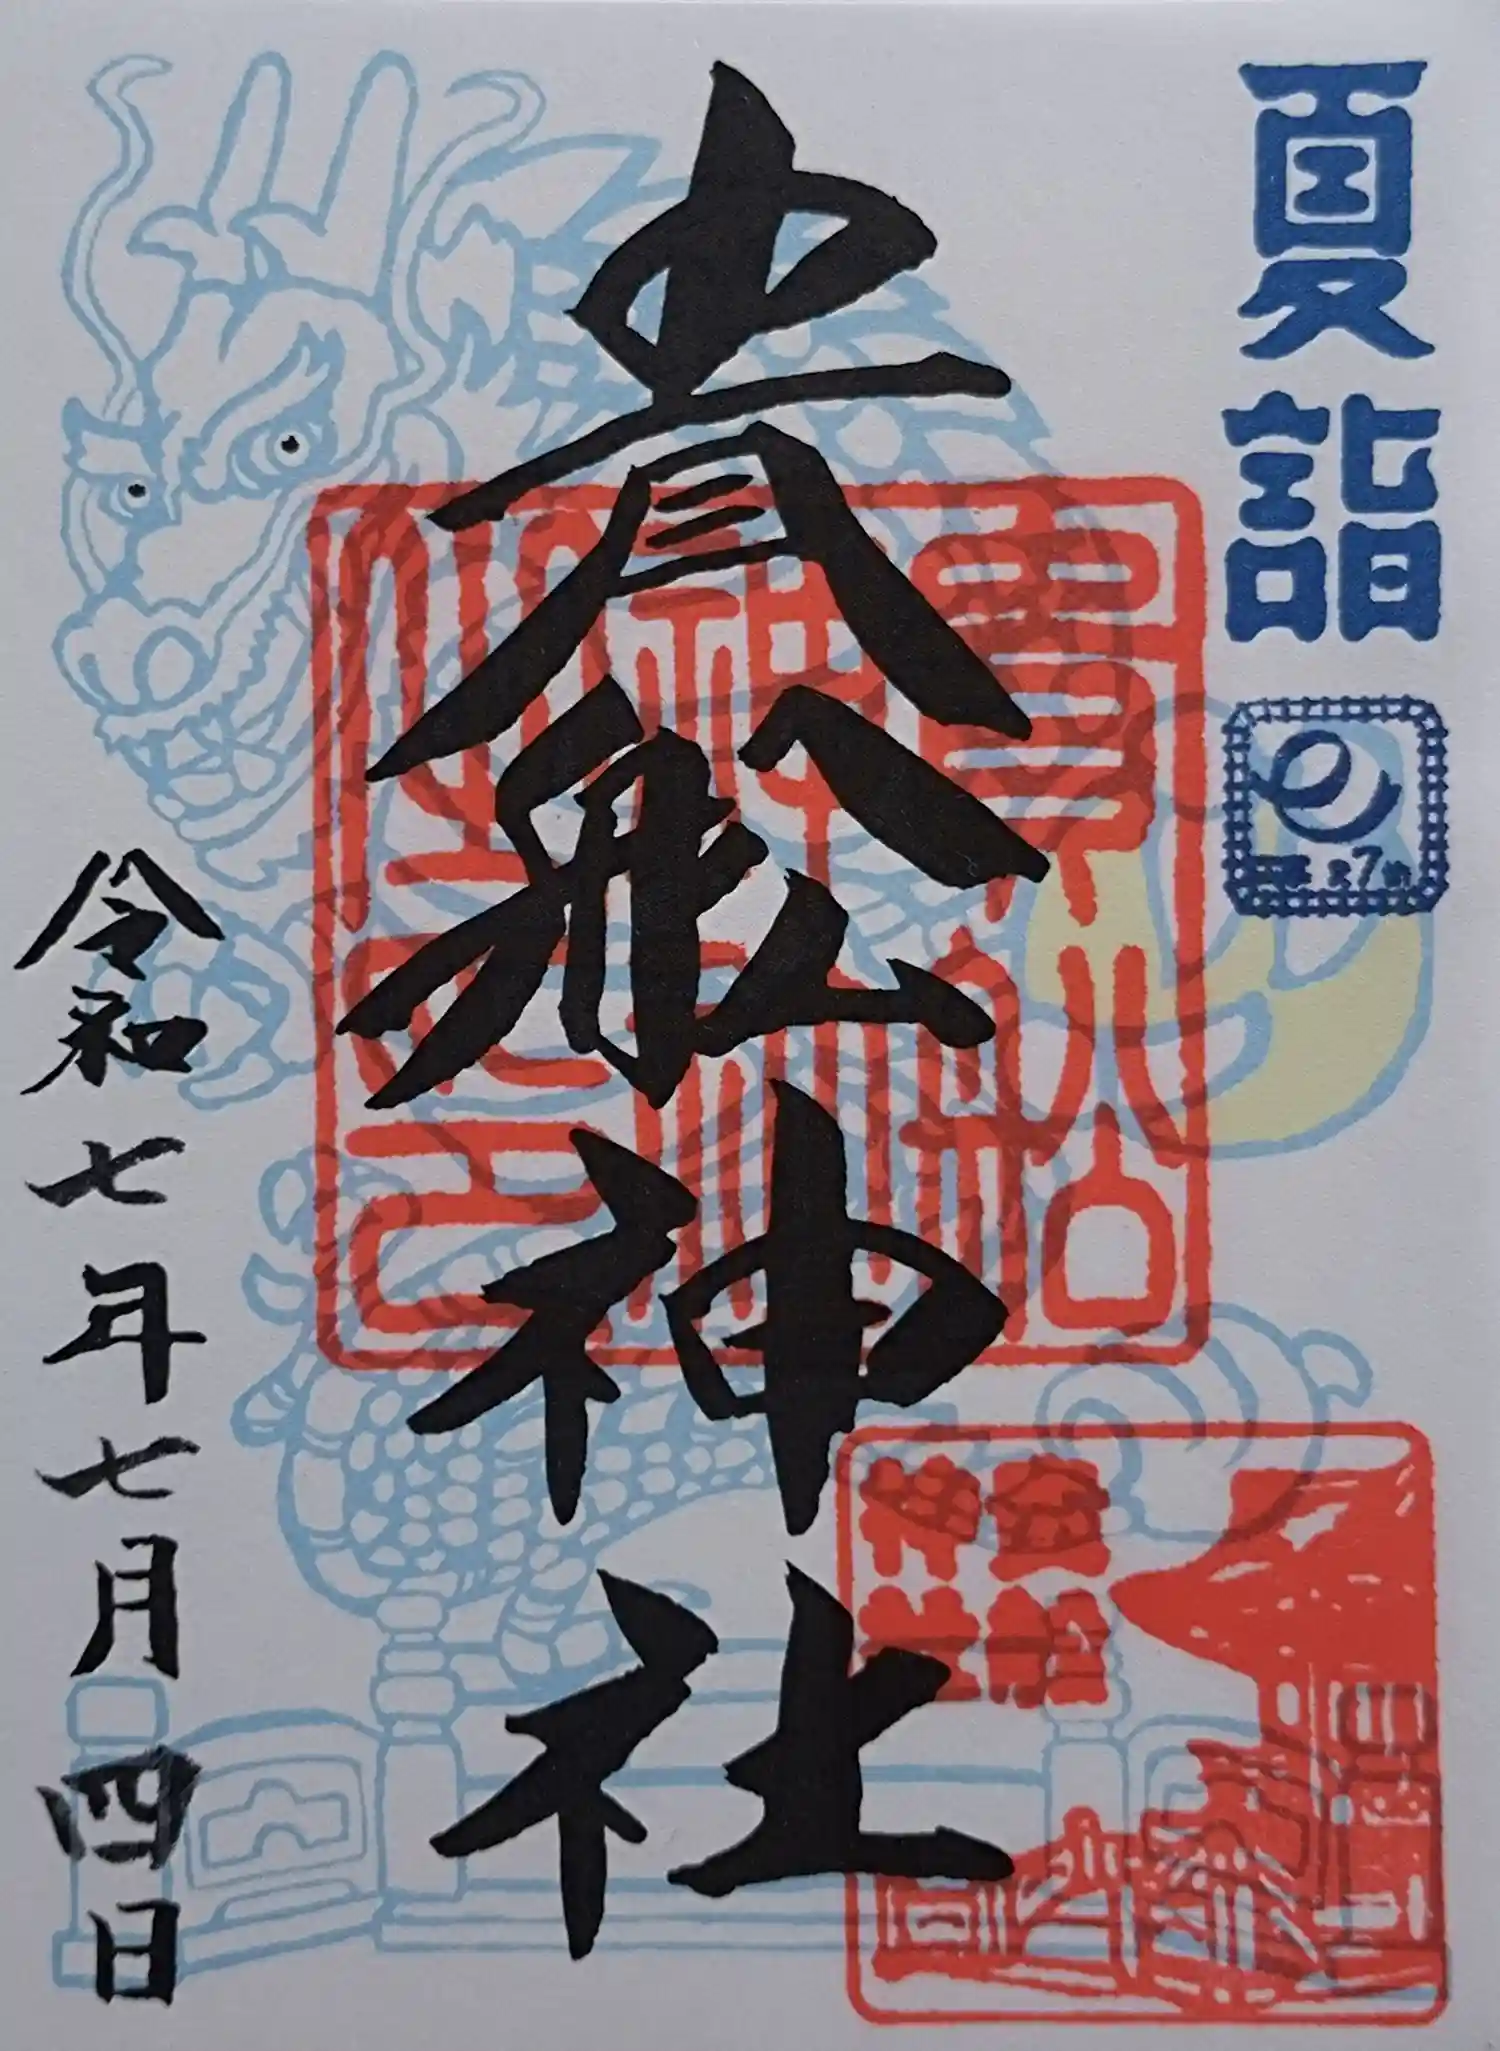 夏詣
貴船神社
貴船
神社
之印
貴船
神社
令和七年七月四日